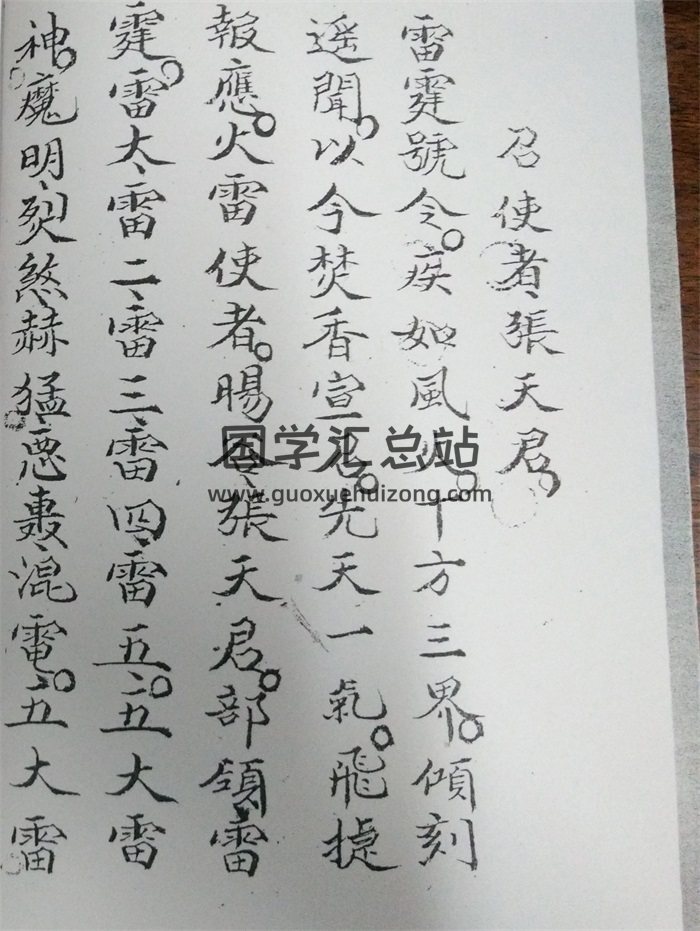 召使者、張天君。
雷霆號令。疾如風火。十方三界。傾刻
遥聞。以今焚香宣召。先天一氣。飛捷
報應。火雷使者。暘谷、張天君。部領雷
霆。雷大、雷二、雷三、雷四、雷五、。五大雷
神。魔明、烈煞、赫猛、悪轟、混電。五大雷
国学汇总站
www.guoxuehuizong.com